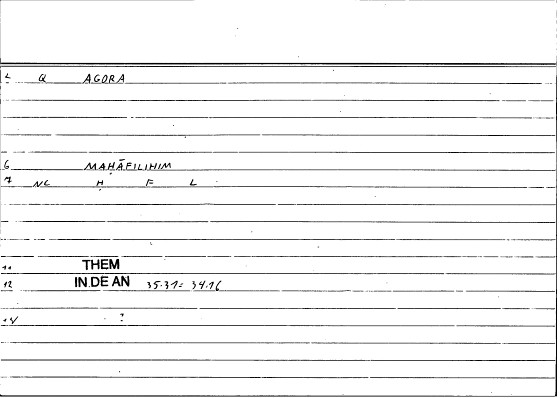 2 Q AGORA
6 MAḤĀFILIHIM
7 NC Ḥ F L
11 THEM
12 IN.DE AN 35.31= 34.16
14 ?